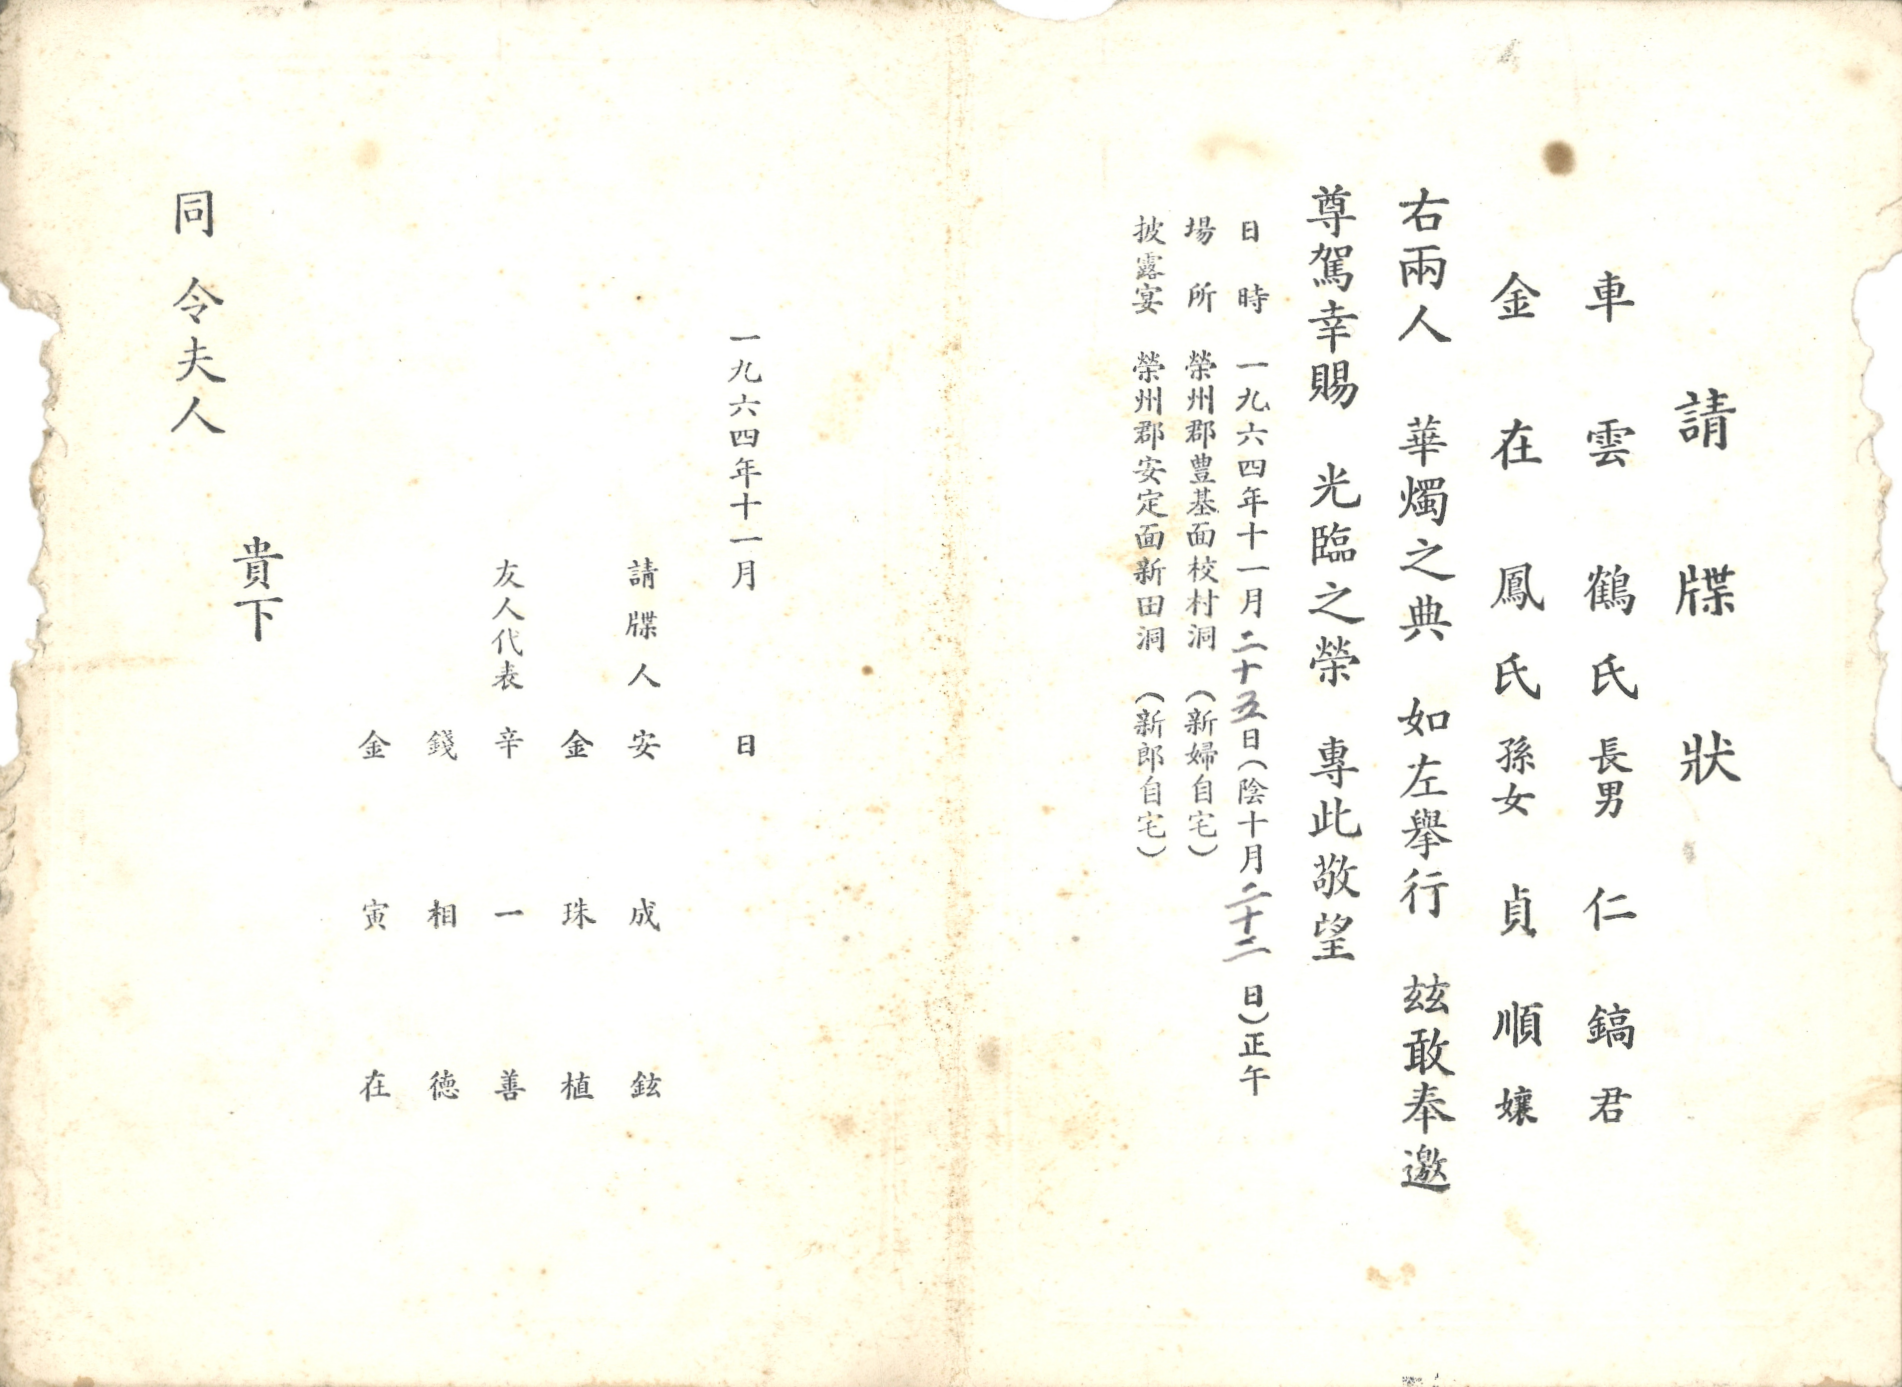 請牒狀
車雲鶴氏長男 仁鎬君
金在鳳氏孫女 貞順孃
右兩人 華燭之典 如左擧行 玆敢奉邀
尊駕幸賜 光臨之榮 專此敬望
日時 一九六四年十一月二十五日(陰十月二十二日)正午
場所 榮州郡豊基面校村洞 (新婦自宅)
披露宴 榮州郡安定面新田洞 (新郎自宅)
一九六四年十一月 日
請牒人 安成鉉
金珠植
友人代表 辛一善
錢相德
金寅在
貴下
同令夫人